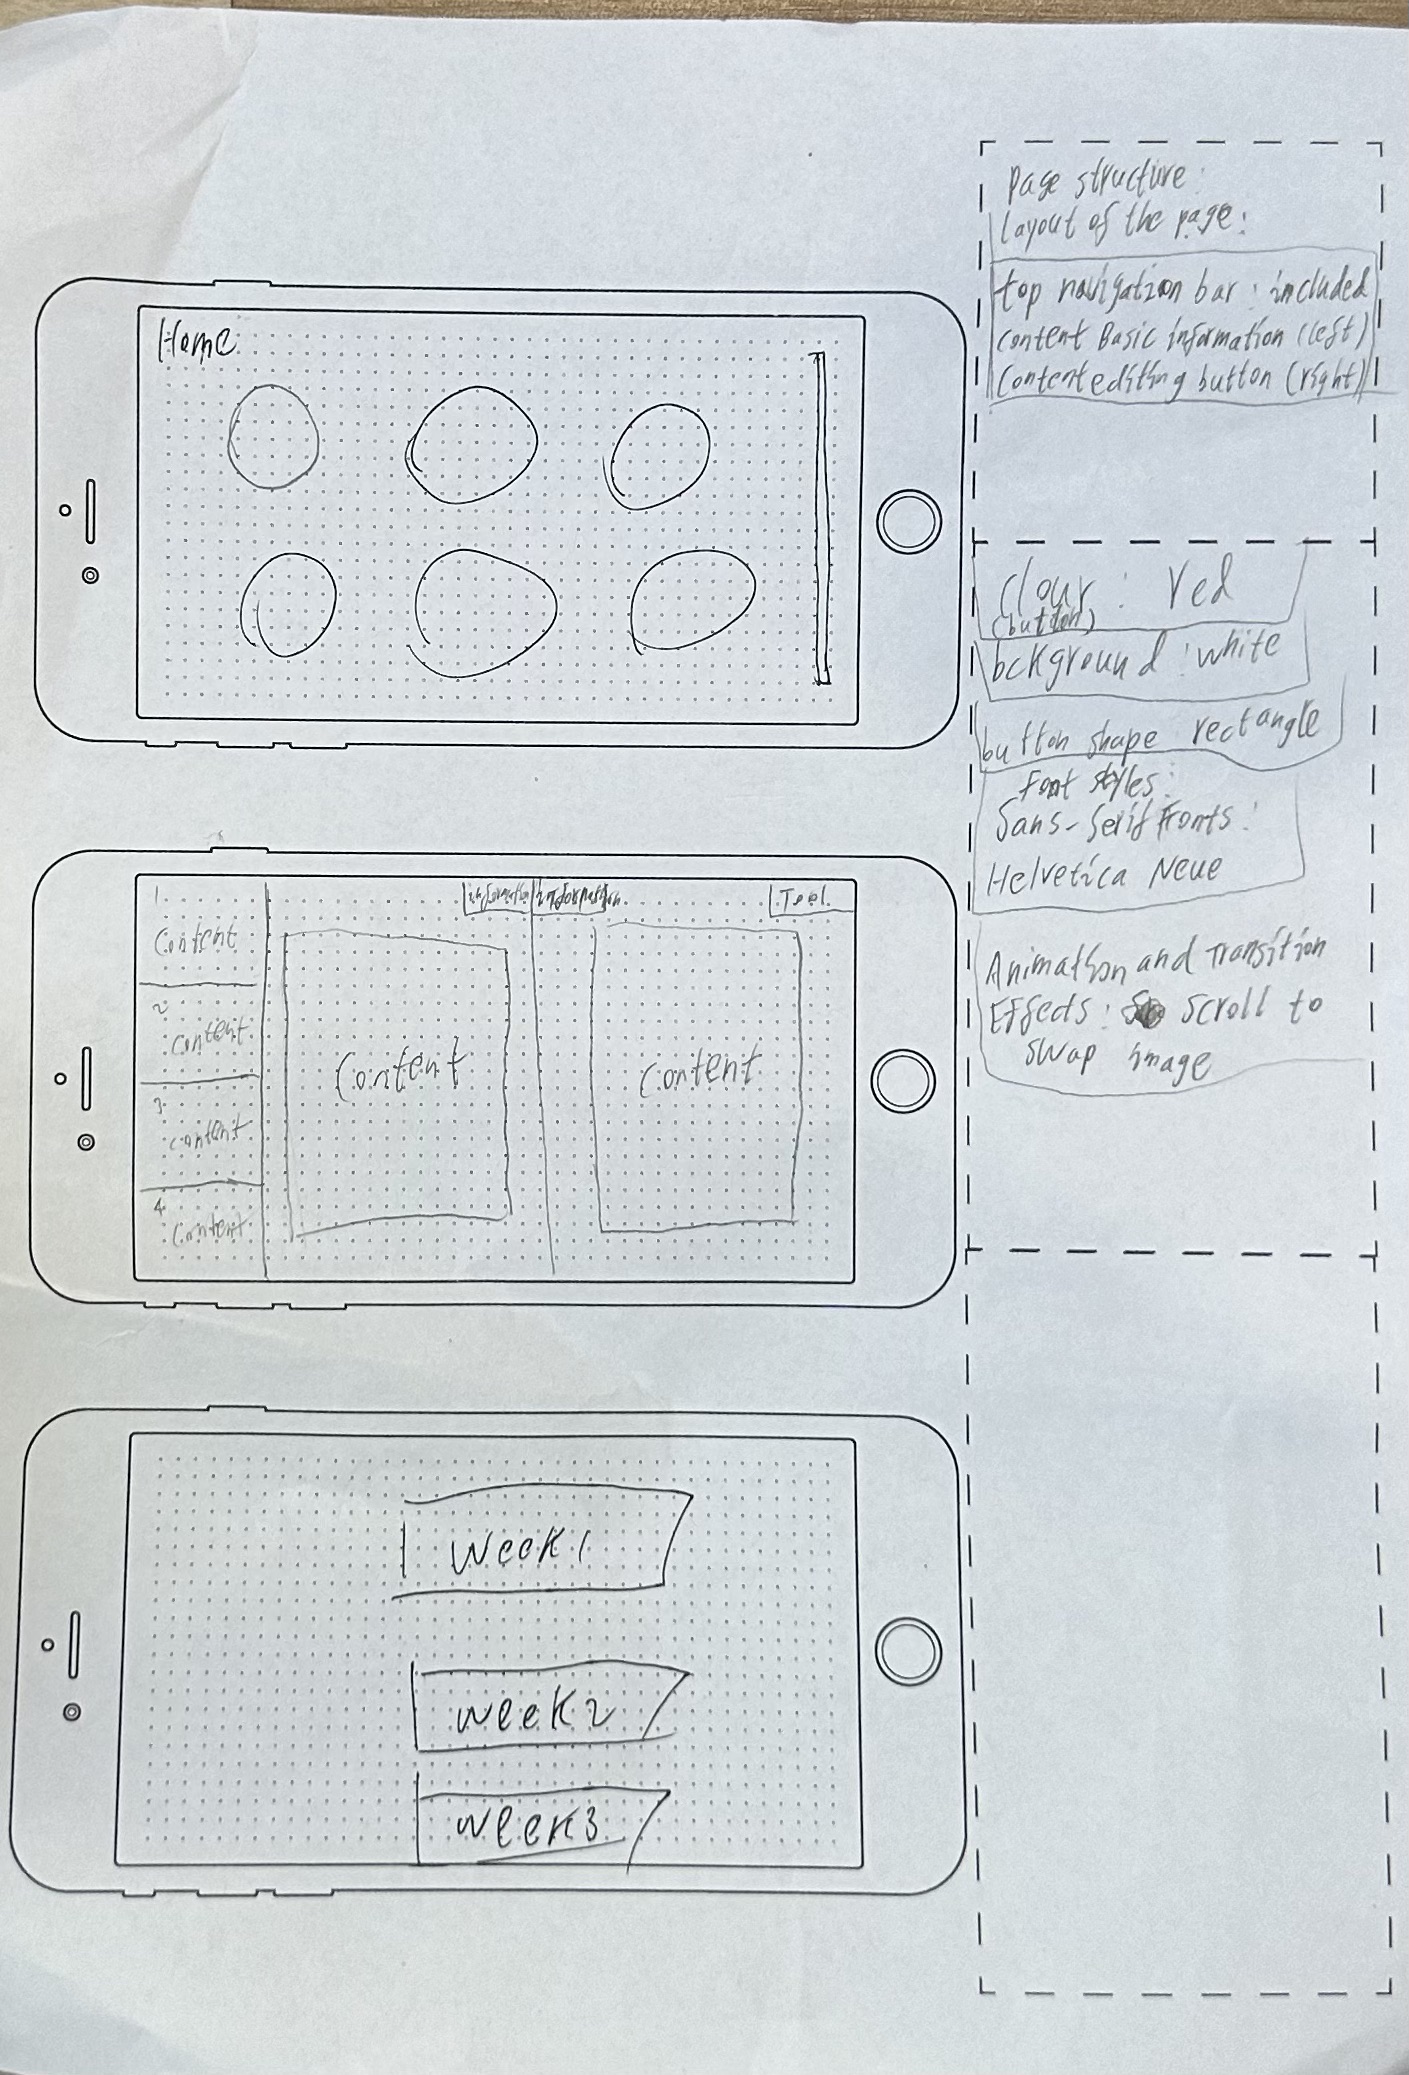 Home
1
Content
2
content
3
content
4
Content
information
information
Tool
Content
Content
Week1
week2
week3
Page structure:
layout of the page:
top navigation bar: included
content Basic information (left)
Content editing button (right)
clour: red
(button)
bckground: white
button shape rectangle
Font styles:
Sans-Serif Fonts:
Helvetica Neue
Animation and Transition
Effects: scroll to
swap image